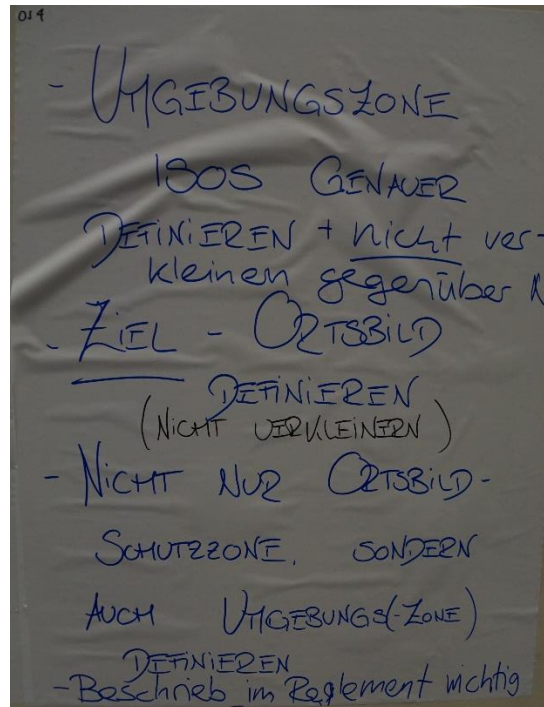 014
- UMGEBUNGSZONE
ISOS GENAUER
DEFINIEREN + nicht ver-
kleinen gegenüber
- ZIEL - ORTSBILD
DEFINIEREN
(NICHT VERKLEINERN)
- NICHT NUR ORTSBILD-
SCHUTZZONE, SONDERN
AUCH UMGEBUNGS(-ZONE)
DEFINIEREN
- Beschrieb im Reglement wichtig